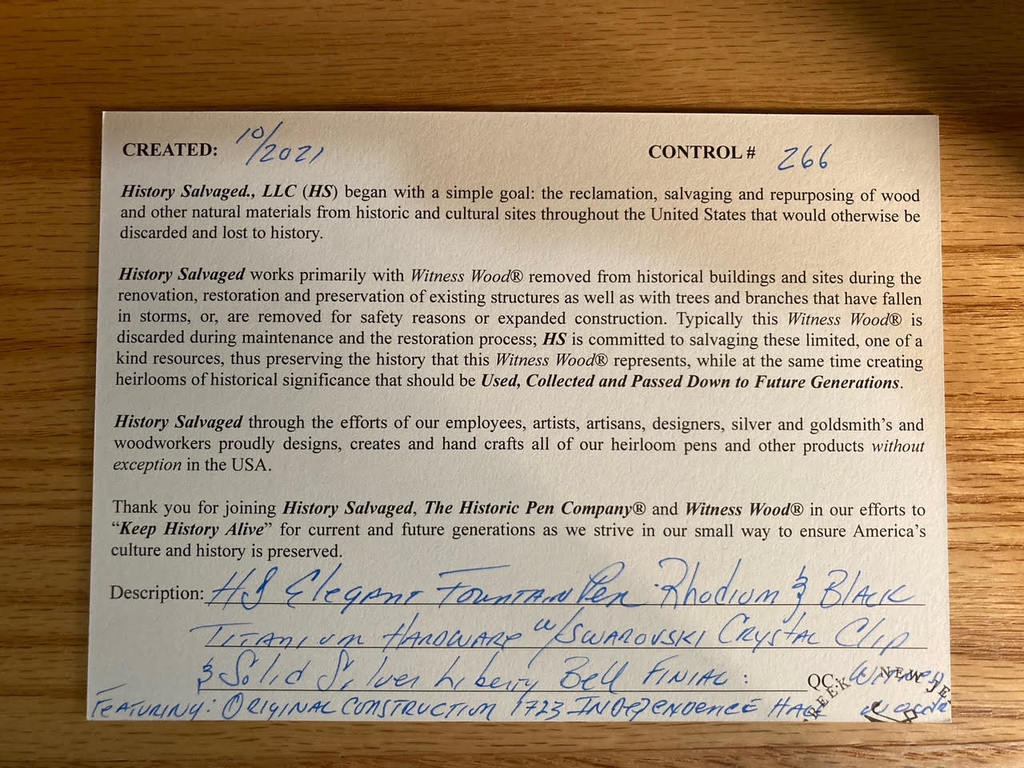 CREATED: 10/2021 CONTROL # 266
History Salvaged., LLC (HS) began with a simple goal: the reclamation, salvaging and repurposing of wood
and other natural materials from historic and cultural sites throughout the United States that would otherwise be
discarded and lost to history.
History Salvaged works primarily with Witness Wood® removed from historical buildings and sites during the
renovation, restoration and preservation of existing structures as well as with trees and branches that have fallen
in storms, or, are removed for safety reasons or expanded construction. Typically this Witness Wood® is
discarded during maintenance and the restoration process; HS is committed to salvaging these limited, one of a
kind resources, thus preserving the history that this Witness Wood® represents, while at the same time creating
heirlooms of historical significance that should be Used, Collected and Passed Down to Future Generations.
History Salvaged through the efforts of our employees, artists, artisans, designers, silver and goldsmith’s and
woodworkers proudly designs, creates and hand crafts all of our heirloom pens and other products without
exception in the USA.
Thank you for joining History Salvaged, The Historic Pen Company® and Witness Wood® in our efforts to
“Keep History Alive” for current and future generations as we strive in our small way to ensure America’s
culture and history is preserved.
Description: HS Elegant Fountain Pen Rhodium & Black
Titanium Hardware w/ Swarovski Crystal Clip
& Solid Silver Liberty Bell Finial: QC: Witness
Featuring: Original Construction 1723 Independence Hall